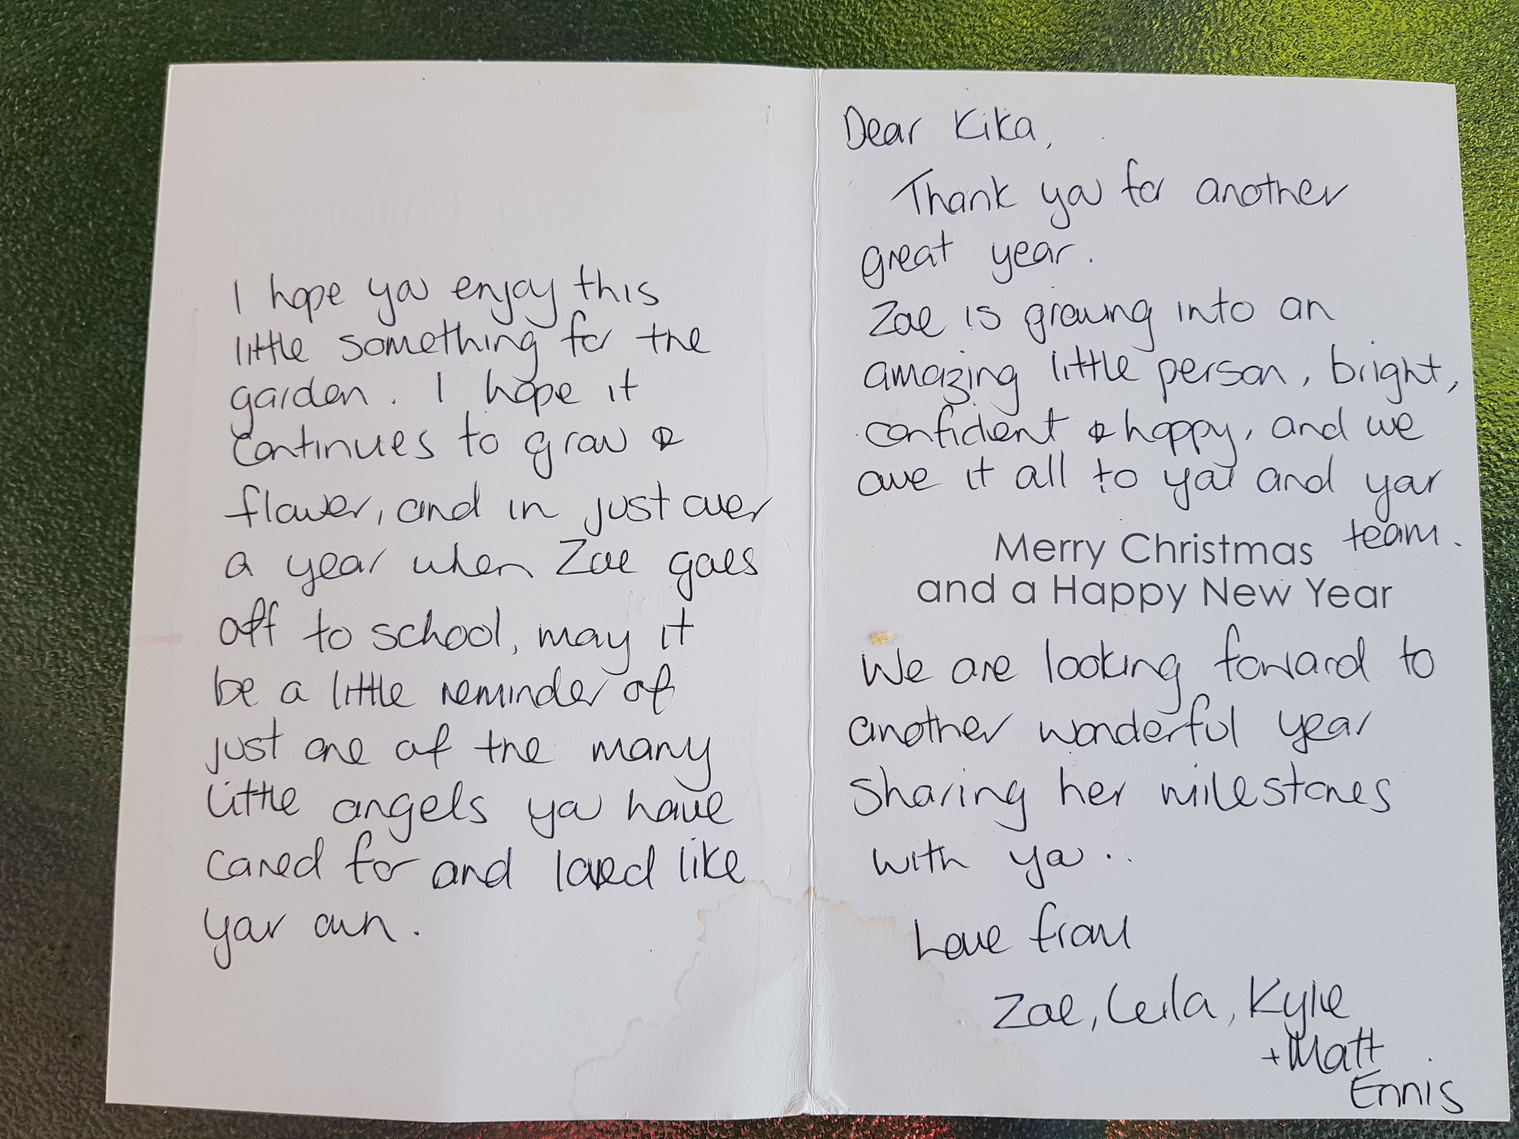 I hope you enjoy this
little something for the
garden. I hope it
continues to grow &
flower, and in just over
a year when Zoe goes
off to school, may it
be a little reminder of
just one of the many
little angels you have
cared for and loved like
your own.
Dear Kika,
Thank you for another
great year.
Zoe is growing into an
amazing little person, bright,
confident & happy, and we
owe it all to you and your
team.
Merry Christmas
and a Happy New Year
We are looking forward to
another wonderful year
sharing her milestones
with you..
Love from
Zoe, Leila, Kylie
+ Matt
Ennis